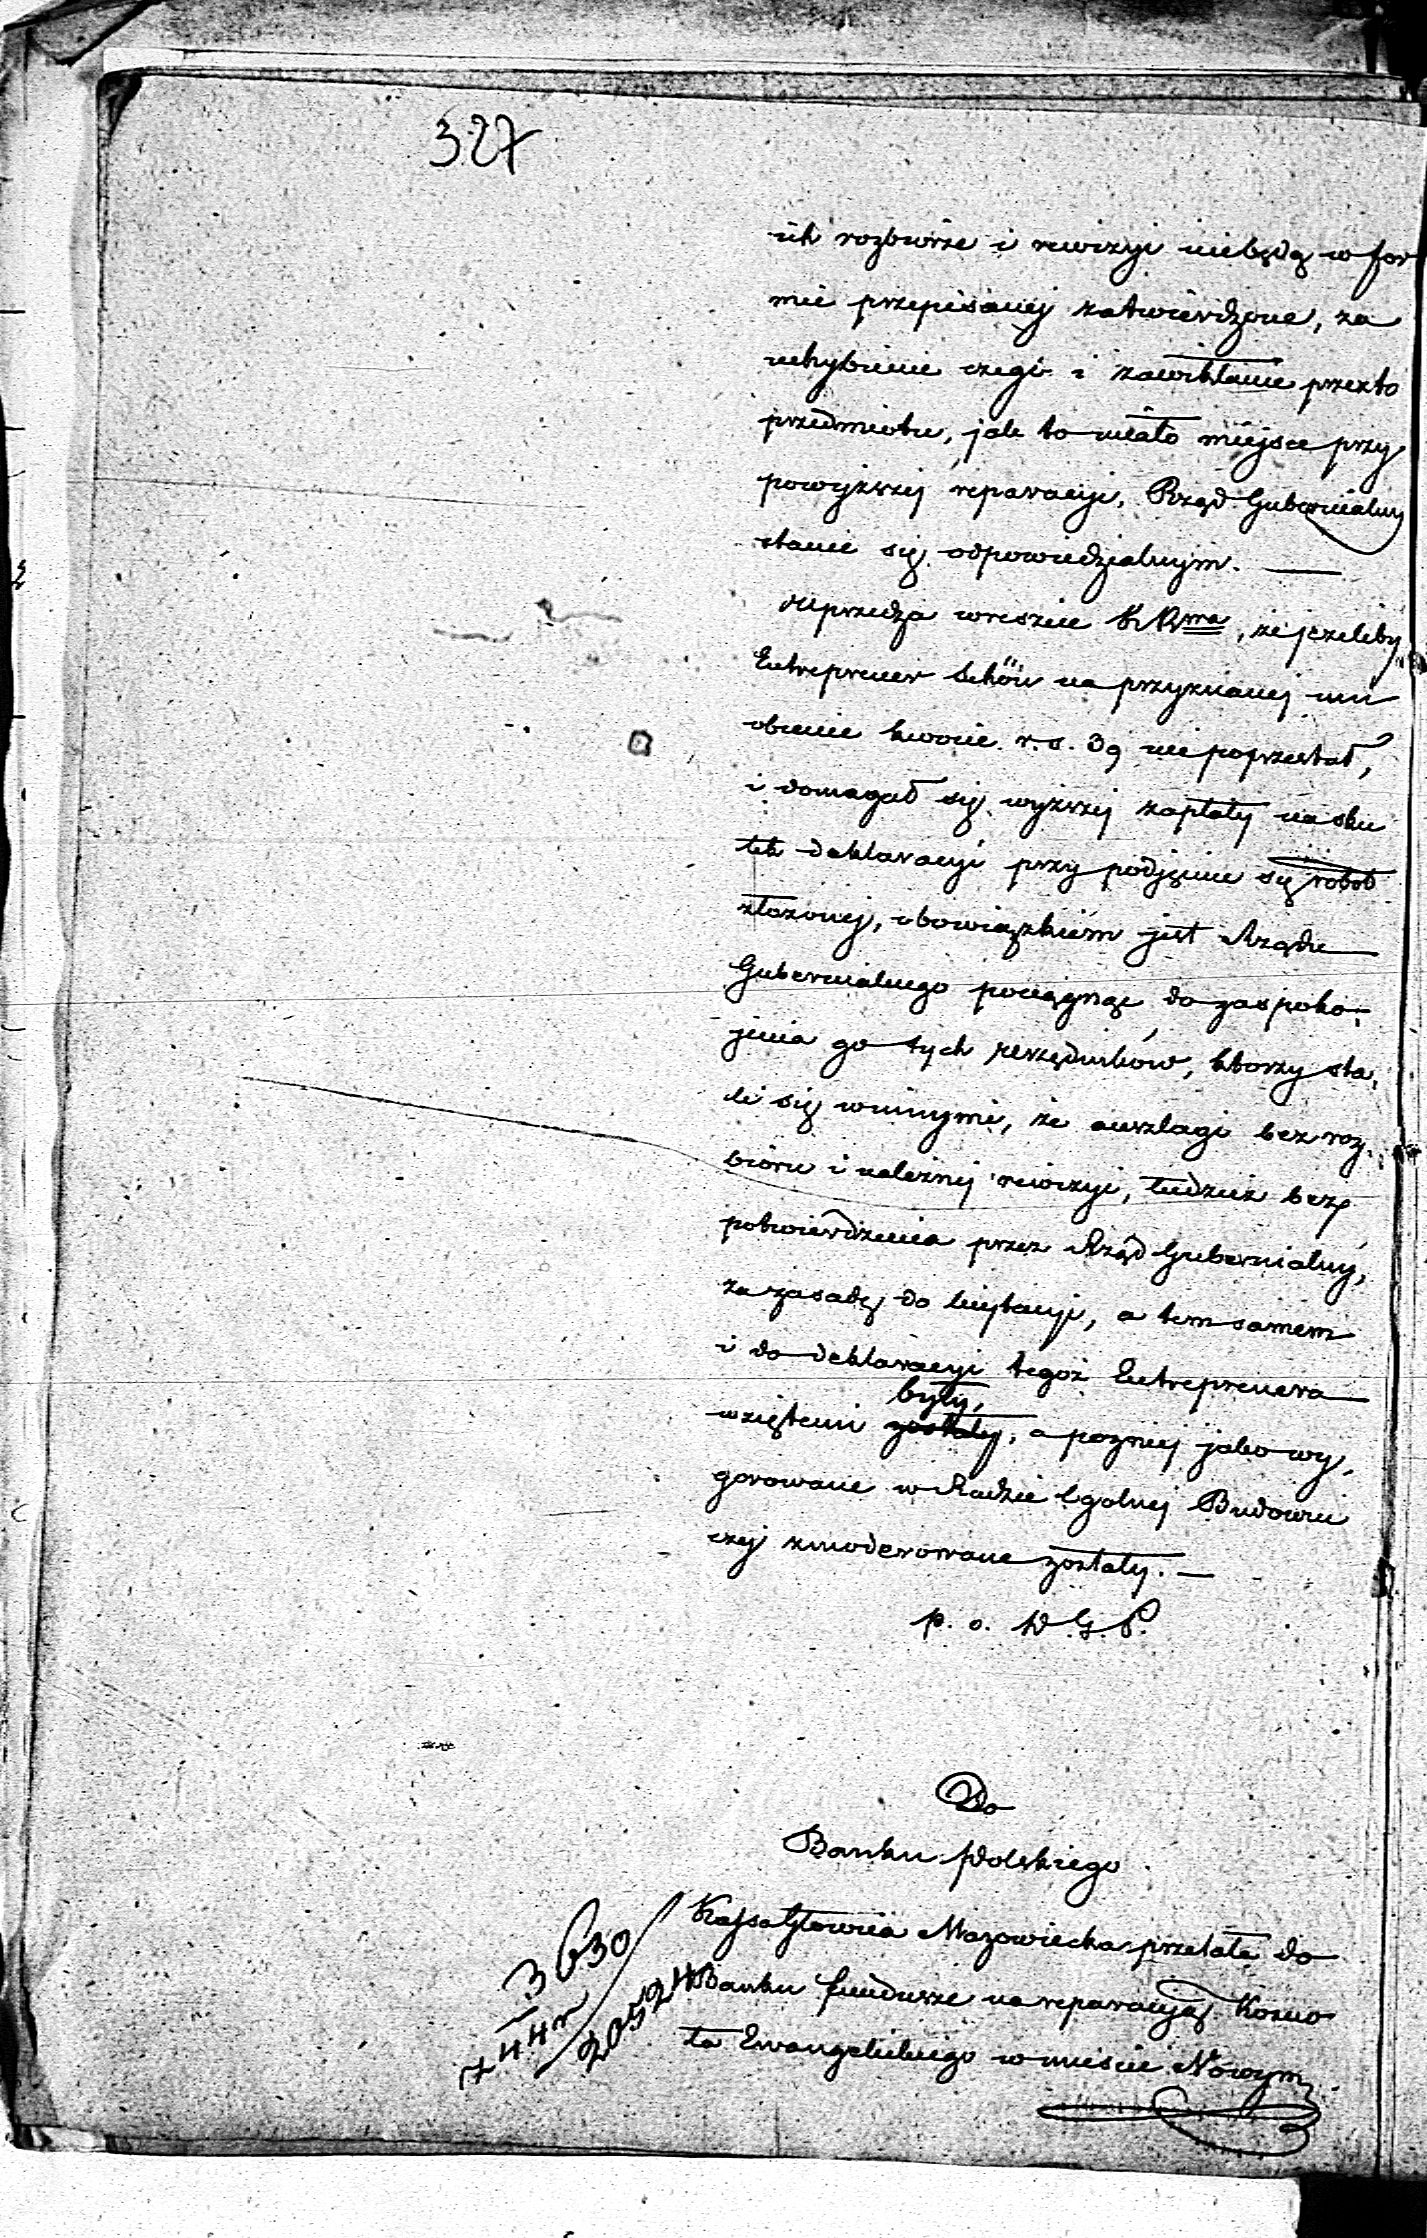 327
ich rozbiorze i rewizyi niebędą w for
mie przepisanej zatwierdzone, za
uchybienie czego i zawikłanie przezto
przedmiotu, jak to miało miejsce przy
powyższej reparacyi, Rząd Gubernialny
stanie się odpowiedzialnym. —
Uprzedza wreszcie KRząd, że jeżeliby
Entreprener Schön na przyznanej mu
obecnie kwocie r.s. 39 nie poprzestał,
i domagał się wyższej zapłaty na sku
tek deklaracyi przy podjęciu się robot
złożonej, obowiązkiem jest Rządu
Gubernialnego pociągnąć do zaspoko-
jenia go tych urzędników, którzy sta,
li się winnymi, że anszlagi bez roz,
bioru i należnej rewizyi, tudzież bez
potwierdzenia przez Rząd Gubernialny,
za zasadę do licytacyi, a tem samem
i do deklaracyi tegoż Entreprenera
były,
wziętemi zostały, a pozniej jako wy,
gorowane w Radzie Ogolnej Budowni
czej zmoderowane zostały. —
p. o. D. G. P.
Do
Banku Polskiego
Kassa Główna Mazowiecka przelała do
Banku fundusze na reparacyą Kościo
ła Ewangelickiego w mieście Nowym
3630
7442
20524